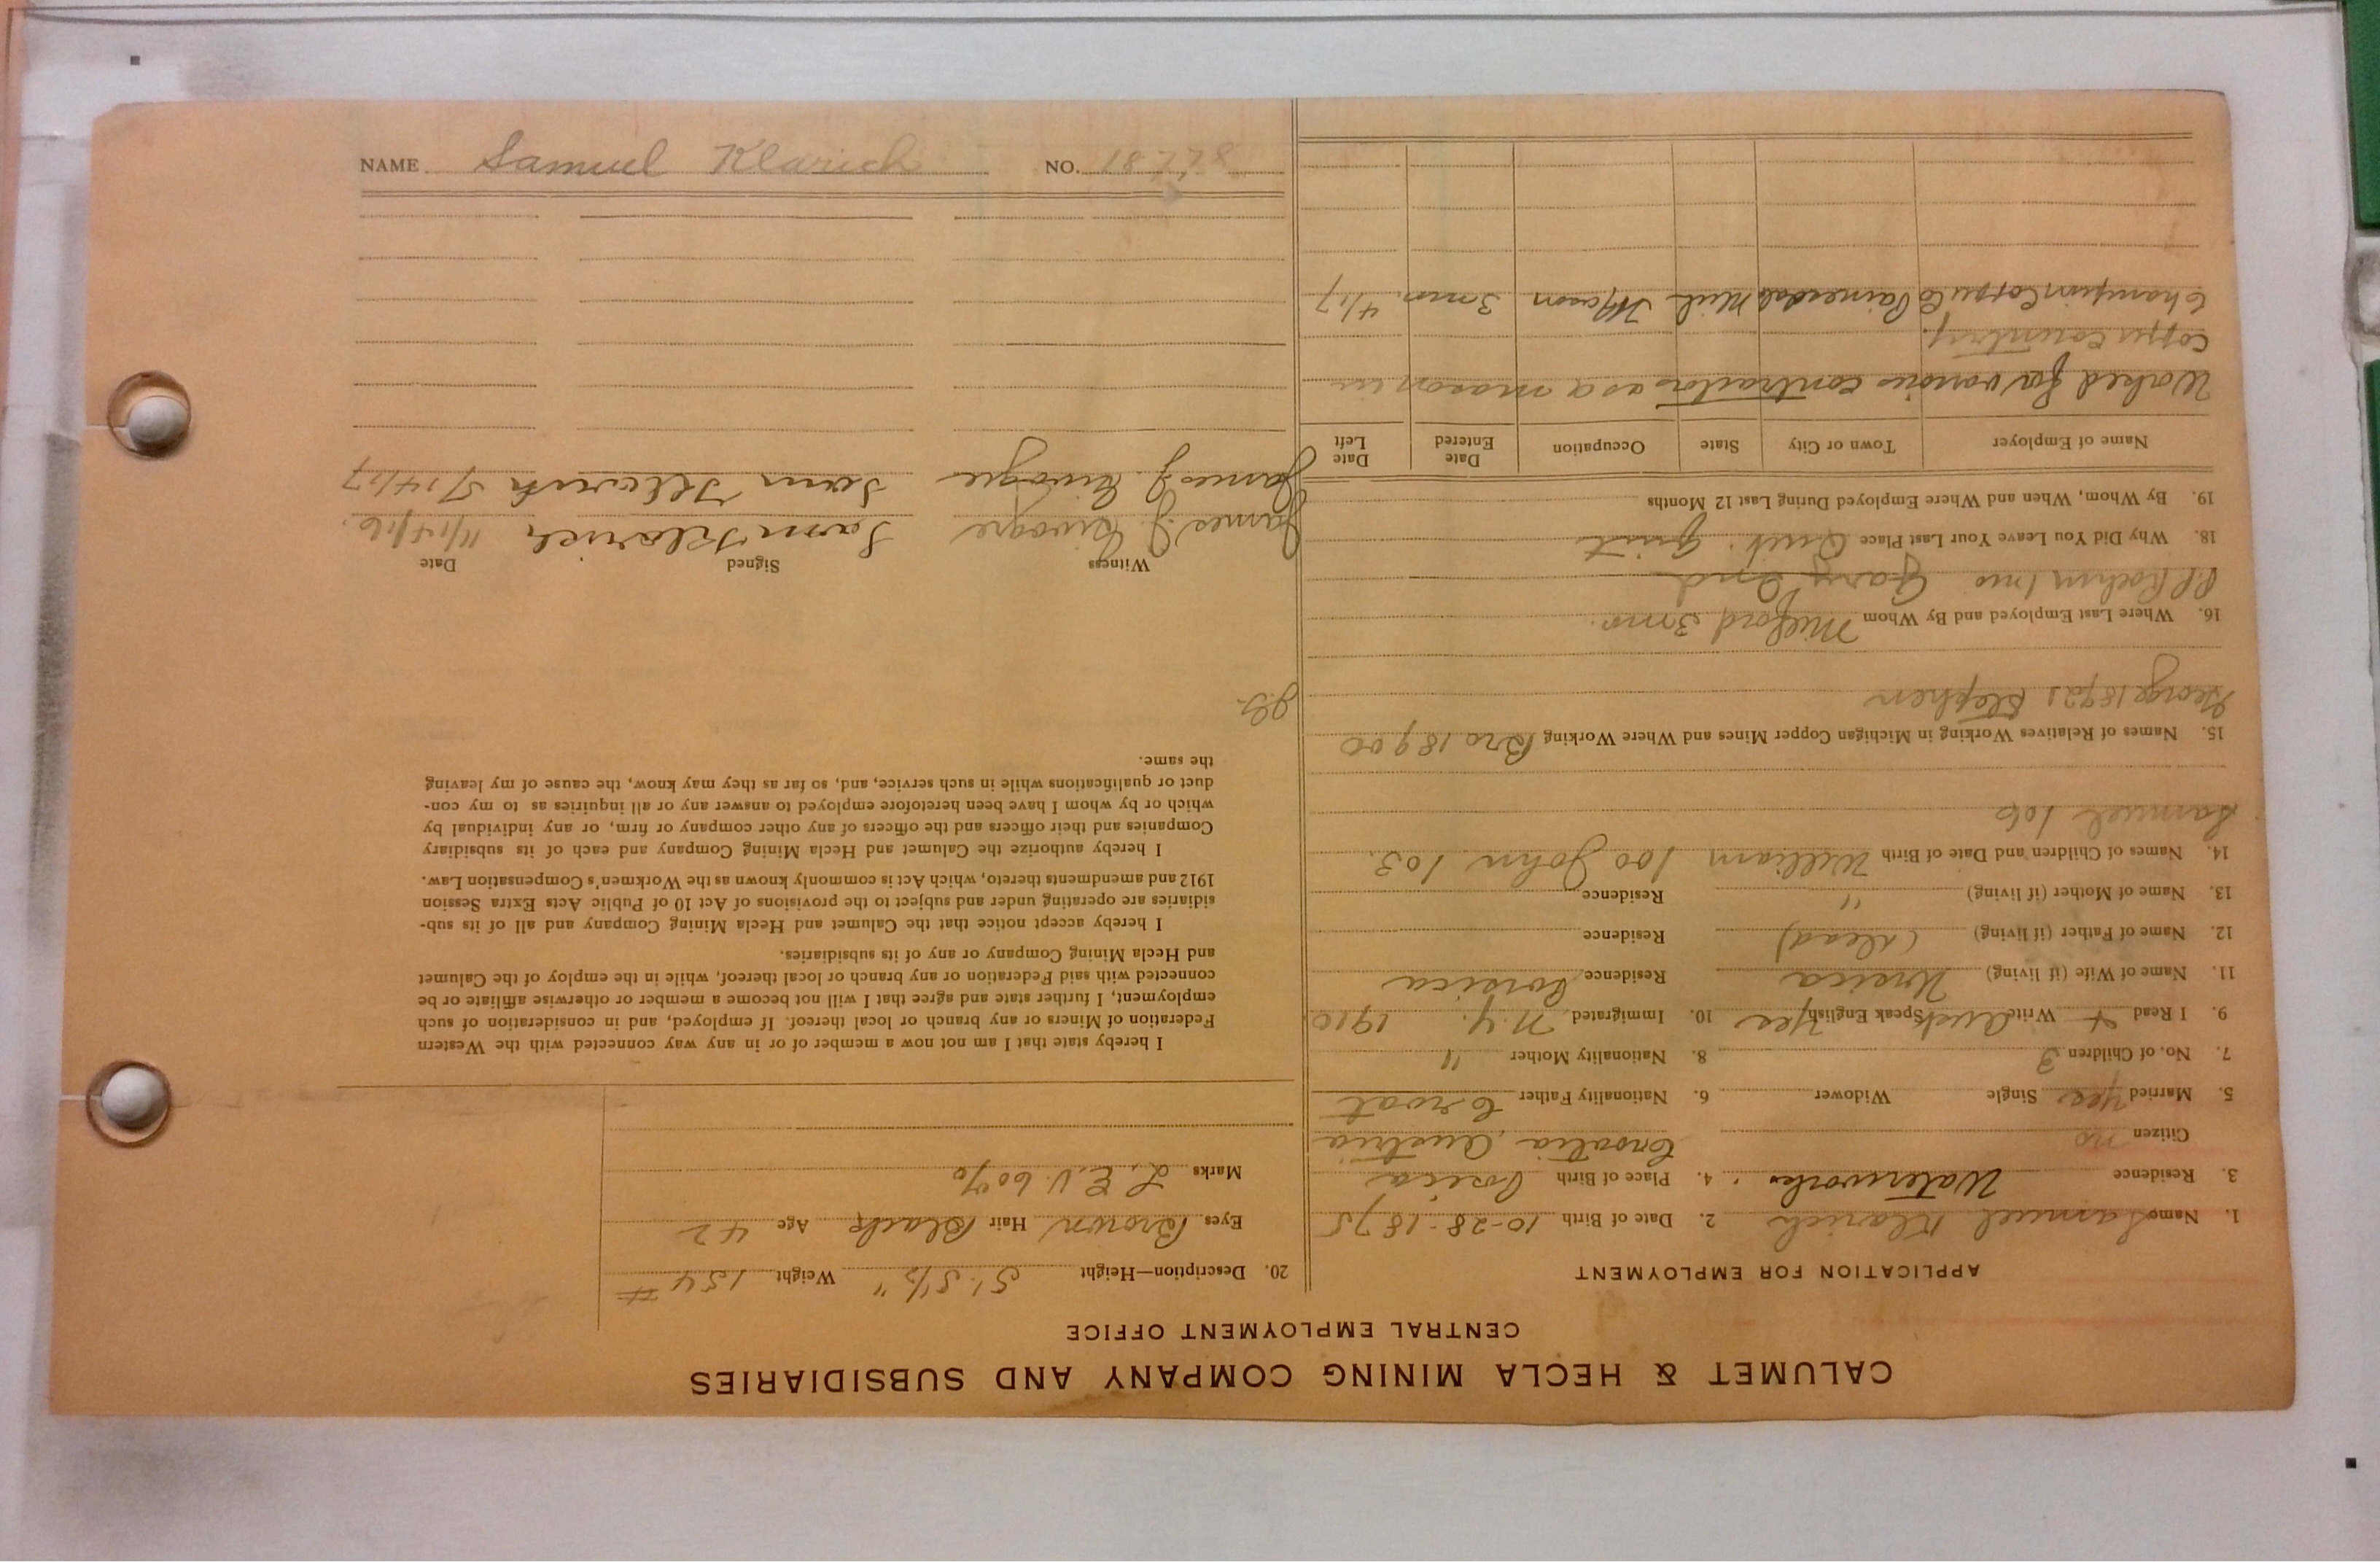 CALUMET & HECLA MINING COMPANY AND SUBSIDIARIES
CENTRAL EMPLOYMENT OFFICE
APPLICATION FOR EMPLOYMENT
1. Name Samuel Klarich 2. Date of Birth 10-28-1875
3. Residence Waterworks 4. Place of Birth Cosica
Citizen no Croatia, Austria
5. Married Yes Single Widower 6. Nationality Father Croat
7. No. of Children 3 8. Nationality Mother "
9. I Read + Write Aust. Speak English Yes 10. Immigrated N.Y. 1910
11. Name of Wife (if living) Residence
12. Name of Father (if living) (dead) Residence
13. Name of Mother (if living) " Residence
14. Names of Children and Date of Birth William 100 John 103.
Samuel 106
15. Names of Relatives Working in Michigan Copper Mines and Where Working Bro 18900
George 18921 Stephen
16. Where Last Employed and By Whom Milford 3 mo.
1 mo Gary Ind
18. Why Did You Leave Your Last Place Quit. Quit
19. By Whom, When and Where Employed During Last 12 Months
Name of Employer Town or City State Occupation Date Entered Date Left
Worked for various contractors as a mason in
Copper Country.
Champion Copper Co Painesdale Mich Mason 3 mo. 4/17
20. Description—Height 5' 5 1/2" Weight 154 #
Eyes Brown Hair Black Age 42
Marks L.E.V. 60%
I hereby state that I am not now a member of or in any way connected with the Western
Federation of Miners or any branch or local thereof. If employed, and in consideration of such
employment, I further state and agree that I will not become a member or otherwise affiliate or be
connected with said Federation or any branch or local thereof, while in the employ of the Calumet
and Hecla Mining Company or any of its subsidiaries.
I hereby accept notice that the Calumet and Hecla Mining Company and all of its sub-
sidiaries are operating under and subject to the provisions of Act 10 of Public Acts Extra Session
1912 and amendments thereto, which Act is commonly known as the Workmen's Compensation Law.
I hereby authorize the Calumet and Hecla Mining Company and each of its subsidiary
Companies and their officers and the officers of any other company or firm, or any individual by
which or by whom I have been heretofore employed to answer any or all inquiries as to my con-
duct or qualifications while in such service, and, so far as they may know, the cause of my leaving
the same.
Witness Signed Date
James J. Sam Klarich 11/14/16.
James J. Sam Klarich 5/14/17
NAME Samuel Klarich NO.